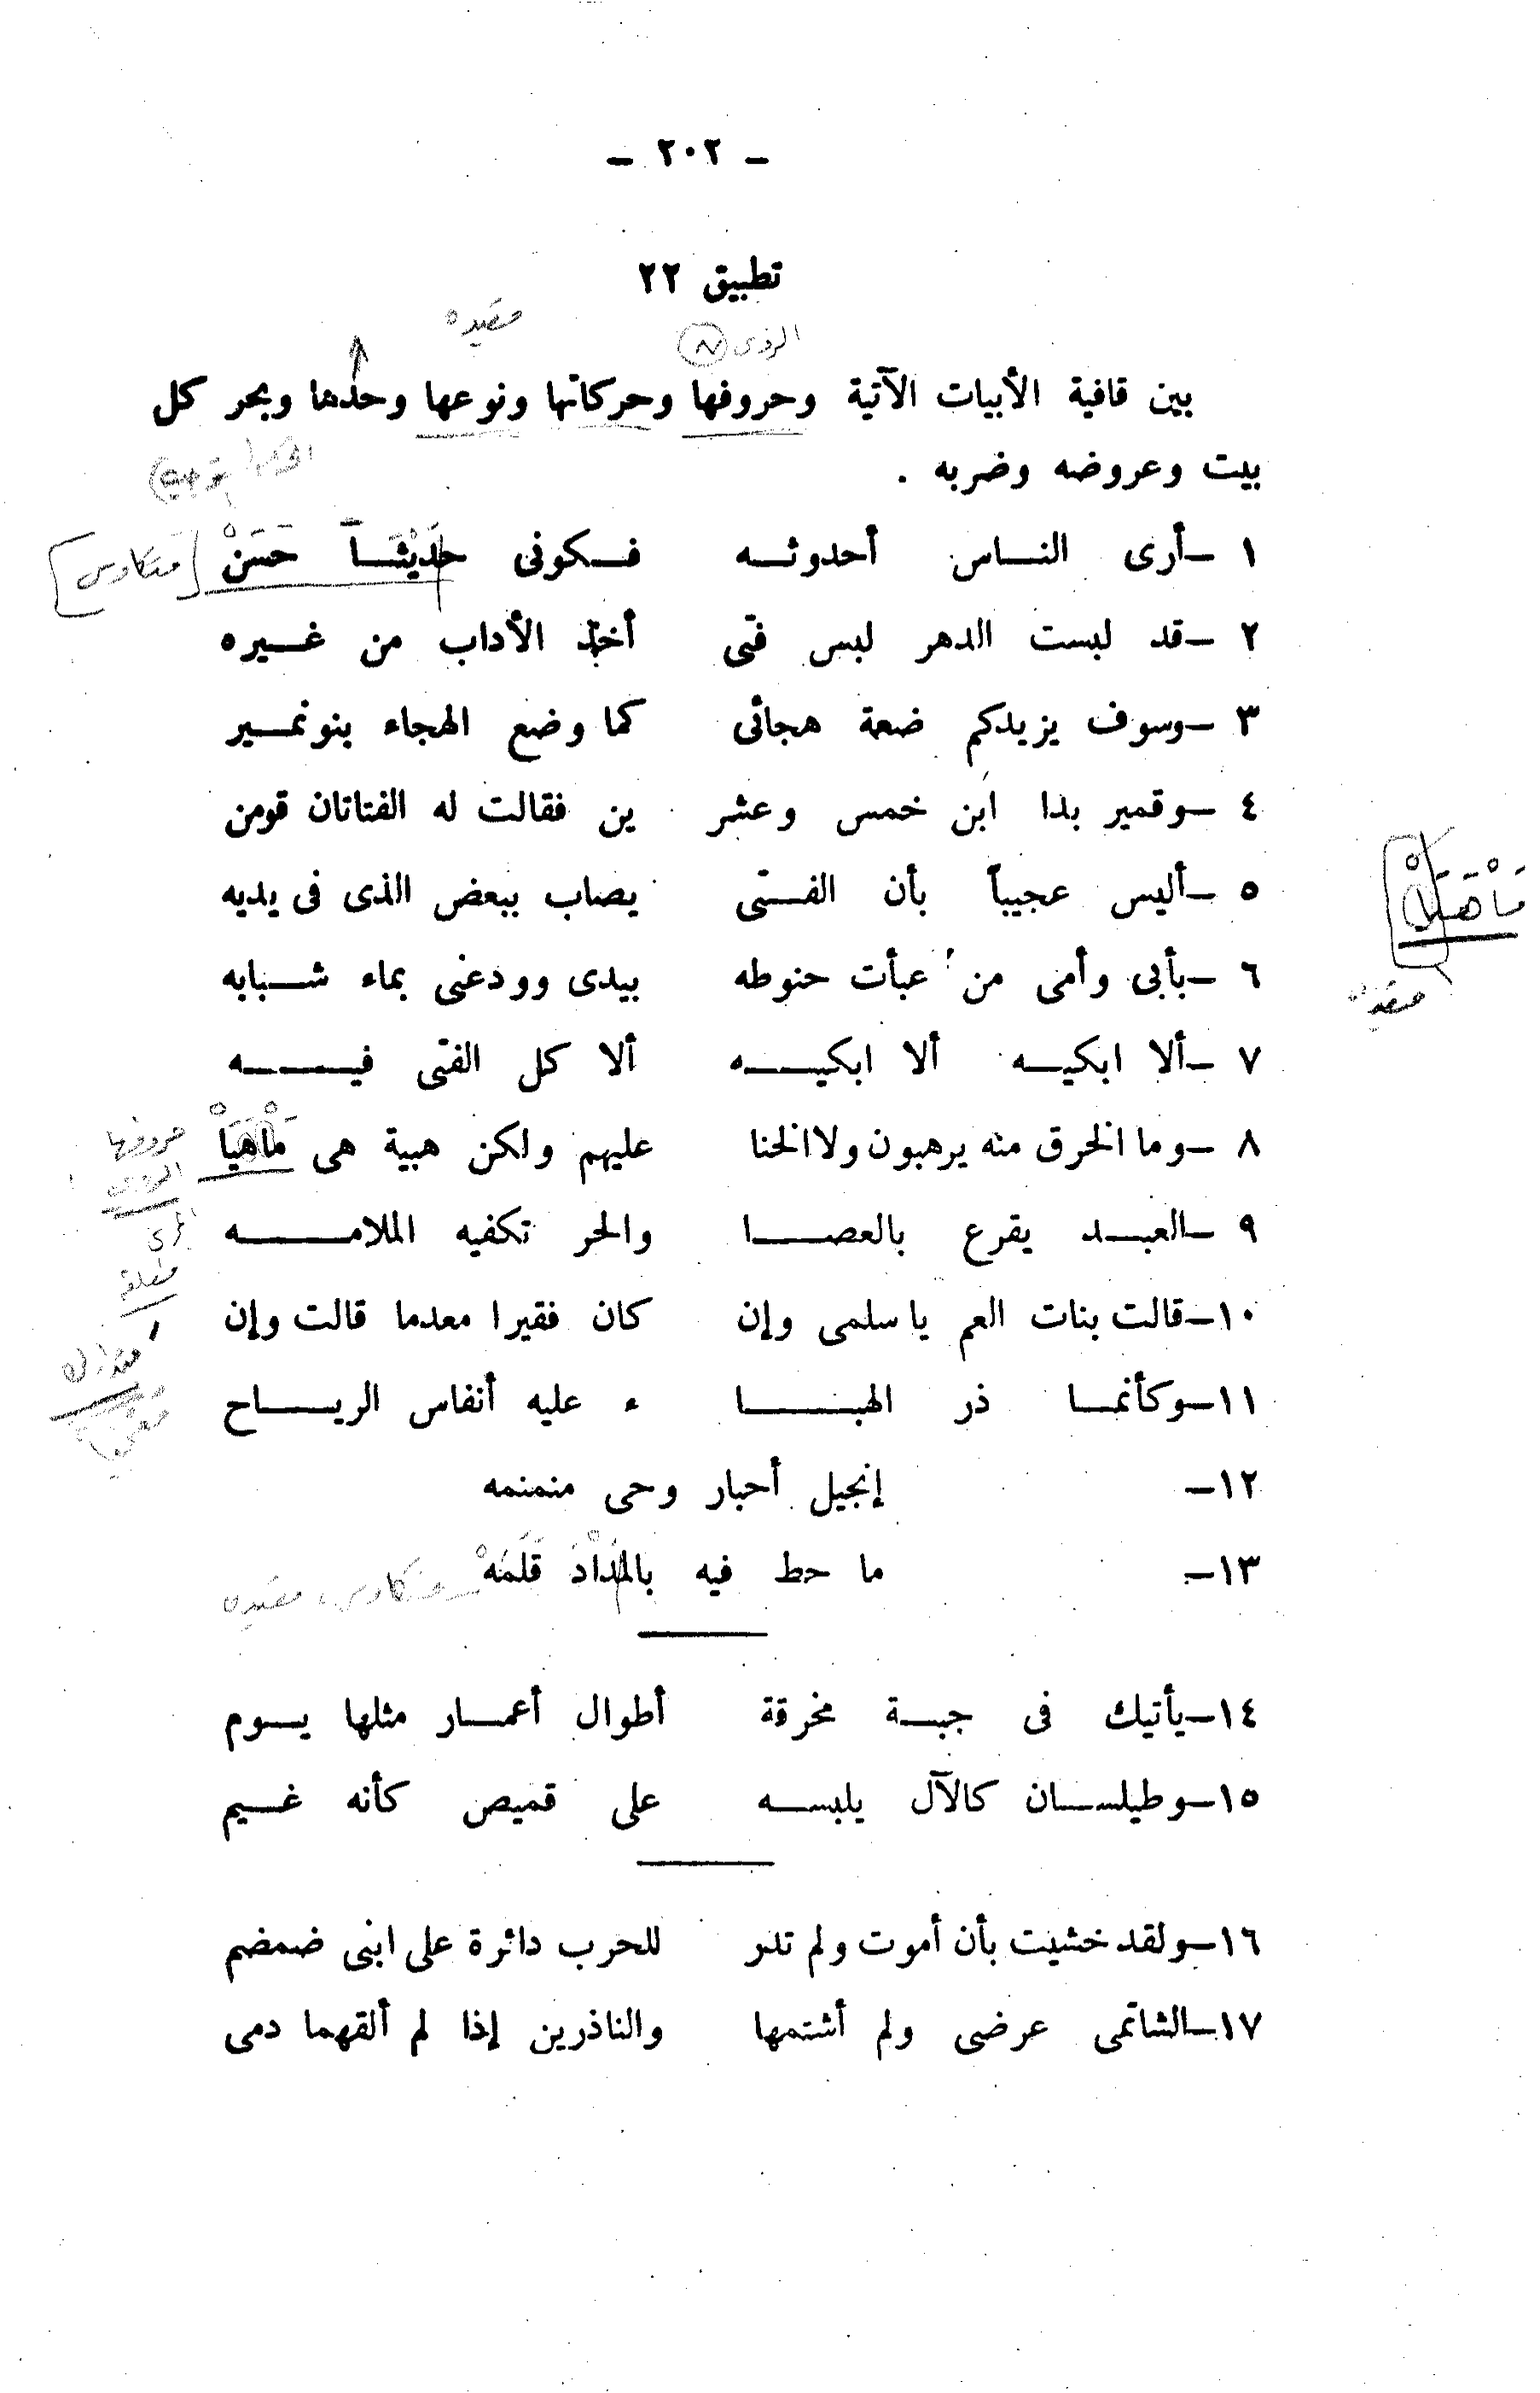 - ٢٠٢ -
تطبيق ٢٢
مقيده
الروى ن
بين قافية الأبيات الآتية وحروفها وحركاتها ونوعها وحدها وبحر كل
بيت وعروضه وضربه .
١ - أرى الناس أحدوثه فكونى حَدِيْثَاً حَسَنْ [متكاوس]
٢ - قد لبست الدهر لبس فتى أخذ الأداب من غيره
٣ - وسوف يزيدكم ضعة هجائى كما وضع الهجاء بنو نمير
٤ - وقمير بدا ابن خمس وعشر ين فقالت له الفتاتان قومن
٥ - أليس عجيباً بأن الفتى يصاب ببعض الذى فى يديه
مَاْهِيَاْ
٦ - بأبى وأمى من عبأت حنوطه بيدى وودعنى بماء شبابه
مقيده
٧ - ألا ابكيه ألا ابكيه ألا كل الفتى فيه
٨ - وما الخرق منه يرهبون ولا الخنا عليهم ولكن هيبة هى مَاْهِيَاْ
حروفها
الروى
٩ - العبد يقرع بالعصا والحر تكفيه الملامه
مطلقة
١٠ - قالت بنات العم ياسلمى وإن كان فقيرا معدما قالت وإن
١١ - وكأنما ذر الهبا ء عليه أنفاس الرياح
١٢ - إنجيل أحبار وحى منمنمه
١٣ - ما حط فيه بالمِدَاْدِ قَلَمُهْ متكاوس، مقيده
١٤ - يأتيك فى جبة مخرقة أطوال أعمار مثلها يوم
١٥ - وطيلسان كالآل يلبسه على قميص كأنه غيم
١٦ - ولقد خشيت بأن أموت ولم تدر للحرب دائرة على ابنى ضمضم
١٧ - الشاتمى عرضى ولم أشتمها والناذرين إذا لم ألقهما دمى